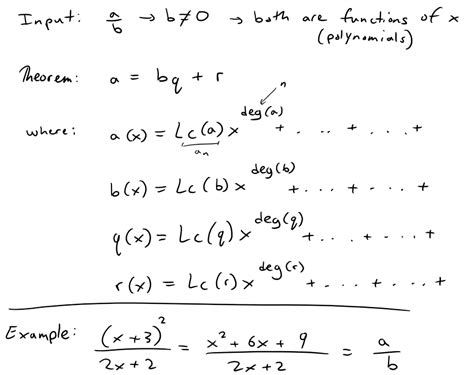 Input: a/b → b≠0 → both are functions of x
(polynomials)
Theorem: a = bq + r
n
where: a(x) = Lc(a)x^deg(a) + ... + ... +
aₙ
b(x) = Lc(b)x^deg(b) + ... + ... +
q(x) = Lc(q)x^deg(q) + ... + ... +
r(x) = Lc(r)x^deg(r) + ... + ... +
Example: (x+3)²/2x+2 = x²+6x+9/2x+2 = a/b